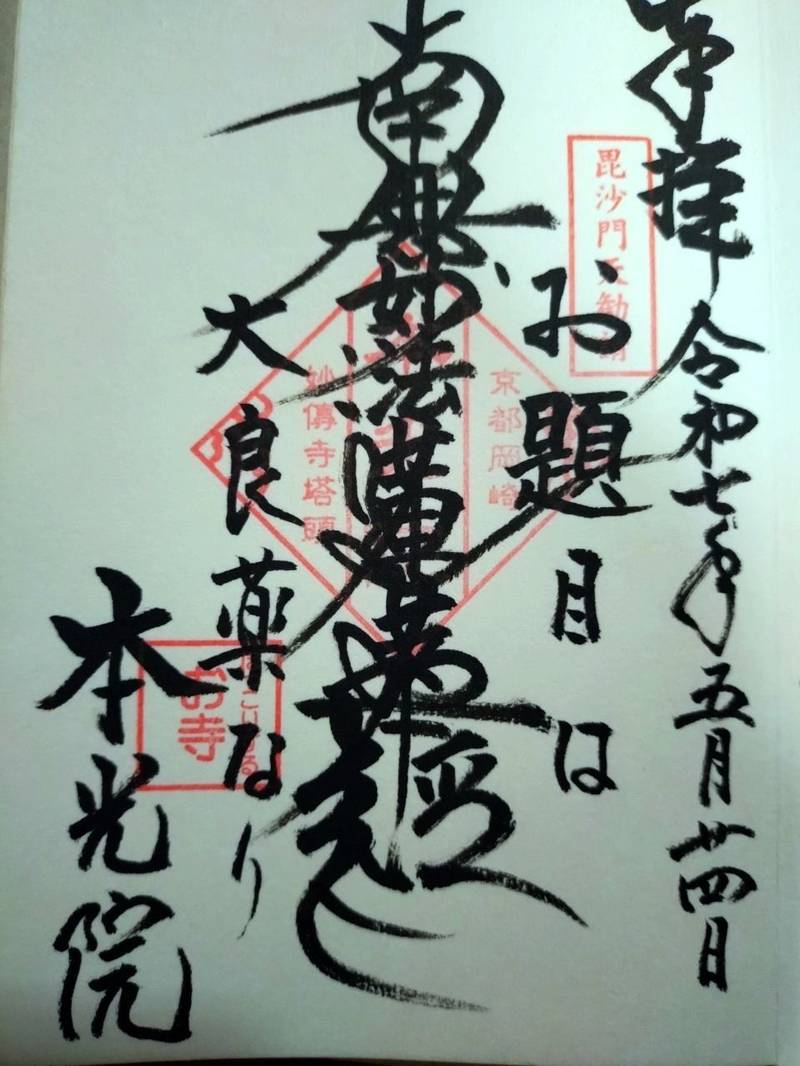 奉拝 令和七年五月廿四日
毘沙門天勧請
お題目は
京都岡崎
南無妙法蓮華経
妙傳寺塔頭
大良薬なり
お寺
本光院